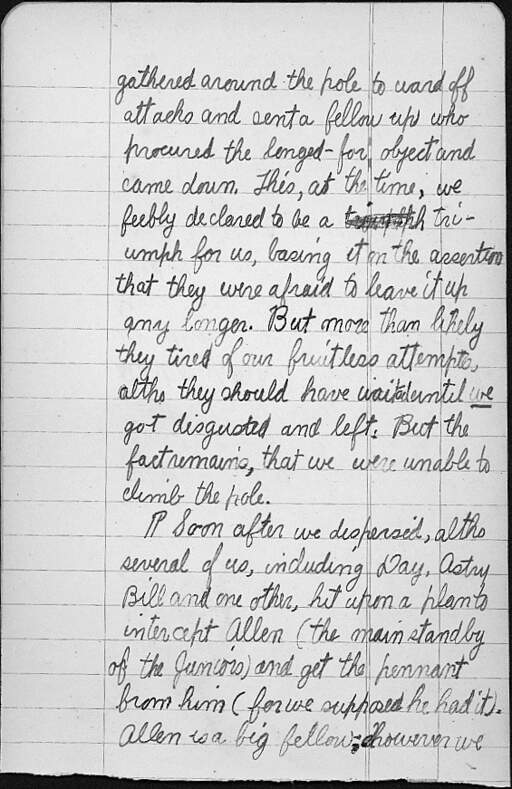 gathered around the pole to ward off
attacks and sent a fellow up who
procured the longed-for object and
came down. This, at the time, we
feebly declared to be a tri-
umph for us, basing it on the assertion
that they were afraid to leave it up
any longer. But more than likely
they tired of our fruitless attempts,
altho they should have waited until we
got disgusted and left. But the
fact remains, that we were unable to
climb the pole.
¶ Soon after we dispersed, altho
several of us, including Day, Astry
Bill and one other, hit upon a plan to
intercept Allen (the main standby
of the Juniors) and get the pennant
from him (for we supposed he had it).
Allen is a big fellow; however we